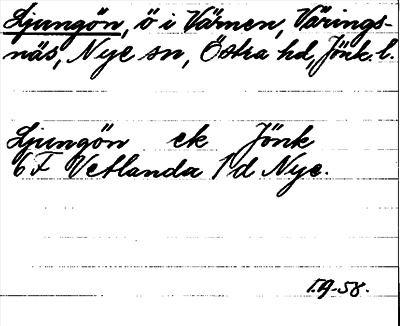 Ljungön, ö i Värnen, Värings-
näs, Nye sn, Östra hd, Jönk. l.
Ljungön ek Jönk
6F Vetlanda 1d Nye.
1.9.58.